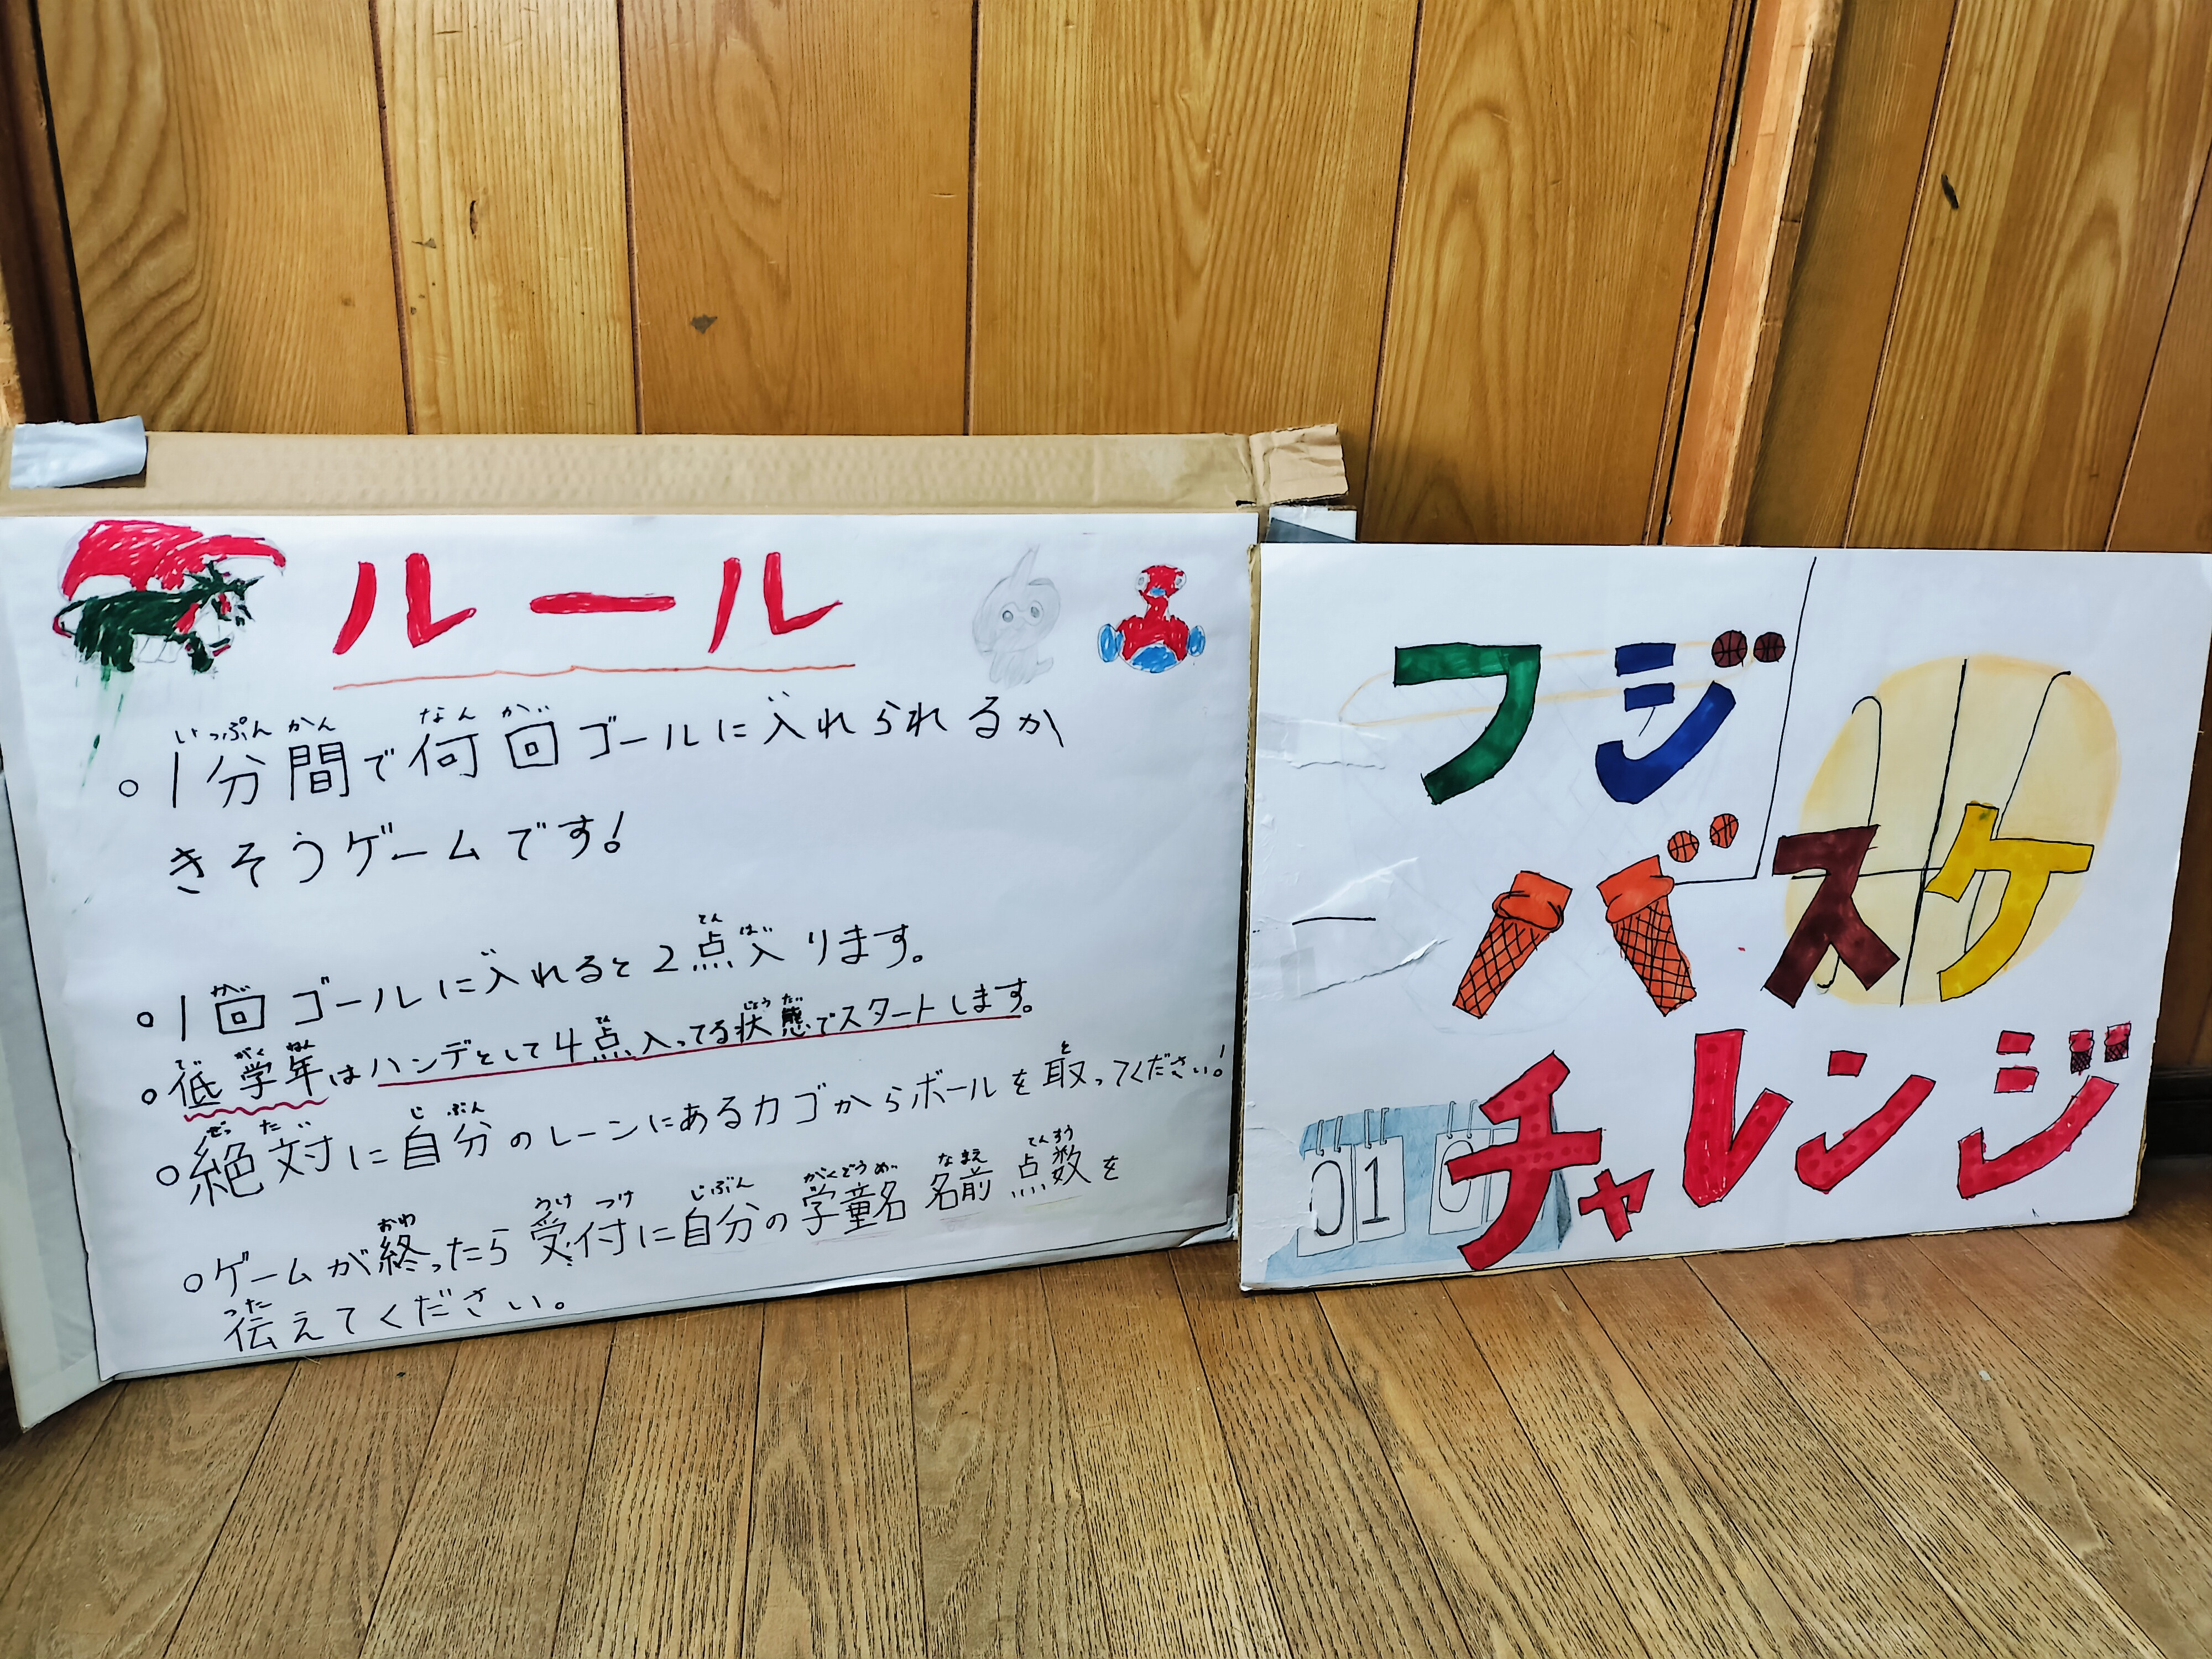 ルール
○1分間で何回ゴールに入れられるか
きそうゲームです!
○1回ゴールに入れると2点入ります。
○低学年はハンデとして4点入ってる状態でスタートします。
○絶対に自分のレーンにあるカゴからボールを取ってください!
○ゲームが終ったら受付に自分の学童名 名前 点数を
伝えてください。
フジ
バスケ
チャレンジ
01 0